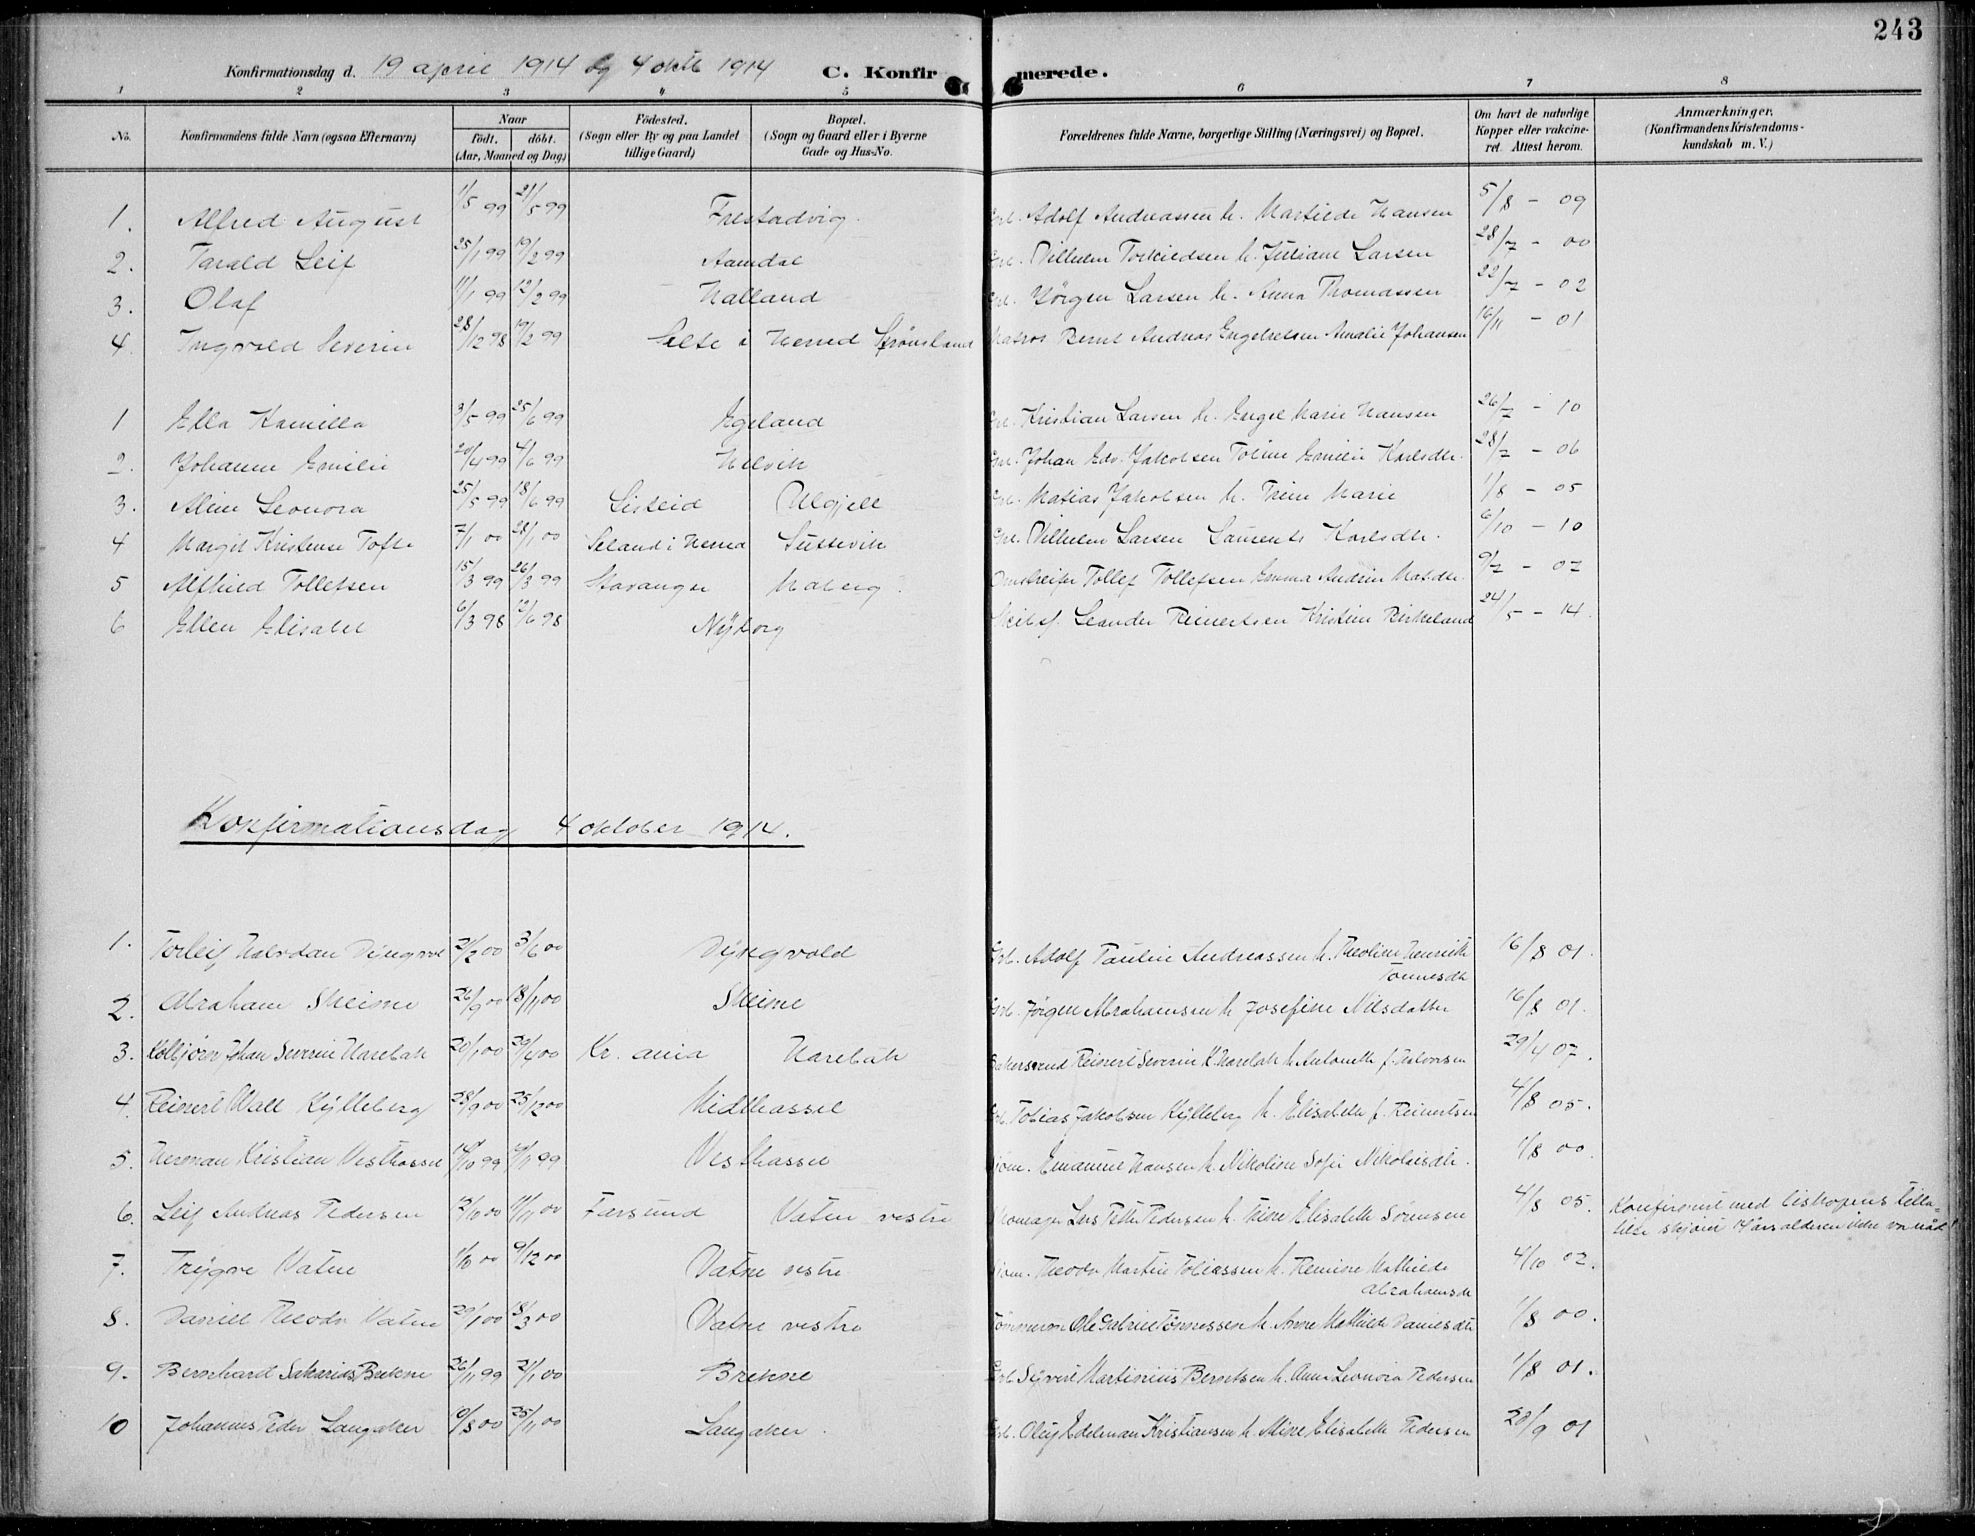 243
Konfirmationsdag d. 19 april 1914 og 4 oktb 1914 C. Konfirmerede.
1 2 3 4 5 6 7 8
No. Konfirmandens fulde Navn (ogsaa Efternavn) Naar födt. döbt. (Aar, Maaned og Dag) Födested. (Sogn eller By og paa Landet tillige Gaard) Bopæl. (Sogn og Gaard eller i Byerne Gade og Hus-No. Forældrenes fulde Navne, borgerlige Stilling (Næringsvei) og Bopæl. Om havt de naturlige Kopper eller vakcineret. Attest herom. Anmærkninger. (Konfirmandens Kristendomskundskab m. V.)
1. Alfred August 1/5 99 21/5 99 Frestadvig Adolf Andreassen h. Martilde Hansen 5/8 - 09
2. Tarald Leif 25/1 99 19/2 99 Aamdal Vilhelm Torkildsen h. Juliane Larsen 28/7 - 00
3. Olaf 11/1 99 12/2 99 Halland Jörgen Larsen h. Anna Thomassen 22/7 - 02
4. Ingvald Severin 28/12 98 19/2 99 i Herred Matros Bernt Andreas Engelretsen Amalie Johansen 16/11 - 01
1 Ella Kamilla 3/5 99 25/6 99 Egeland Kristian Larsen h. Engel Marie Hansen 26/7 - 10
2. Johanne Emilie 20/4 99 4/6 99 Helvik Johan Edv. Jakobsen Toline Emilie Karlsdtr. 28/7 - 06
3. Aline Leonora 25/5 99 18/6 99 Ulgjell Matias Jakobsen h. Trine Marie 1/8 - 05
4 Margit Kristense Tofte 7/1 00 28/1 00 i Herred Vilhelm Larsen Laurents Karlsdtr. 6/10 - 10
5 Alfhild Tollefsen 15/3 99 26/3 99 Stavanger Maberg Tollef Tollefsen Emma Andrine Matsdtr. 9/7 - 07
6 Ellen Elisabet 6/3 98 12/6 98 Nyborg Leander Reinertsen Kristine Birkeland 24/5 - 14.
Konfirmationsdag 4 oktober 1914.
1. Torleif Halvdan Dyngvol 21/2 00 3/6 00 Dyngvold Adolf Paulin Andreassen h. Theoline Henriette 16/8 01.
Tönnesdtr
2. Abraham Skeime 26/9 00 18/11 00 Skeime Jörgen Abrahamsen h. Josefine Nilsdatter 16/8 01.
3. Kolbjörn Johan Severin Harebak 20/1 00 29/4 00 Kr. ania Harebak Reinert Severin K. Harebak h. Antonette f. Halvorsen 29/4 07.
4. Reinert Wall Kylleberg 28/9 00 25/12 00 Midthassel Tobias Jakobsen Kylleberg h. Elisabeth f. Reinertsen 4/8 05.
5. Herman Kristian Vesthassel Vesthassel Emanuel Hansen h. Nikoline Sofie Nikolaisdtr. 1/8 00.
6. Leif Andreas Pedersen Farsund Vatne vestre Lars Petter Pedersen h. Trine Elisabeth Sörensen 4/8 05. Konfirmert med biskopens tilla-
telse skjönt 14 års alderen ikke var nådd
7. Trygve Vatne 9/12 00 Vatne vestre Theodor Martin Tobiassen h. Remine Mathilde 4/10 02.
Abrahamsdtr
8. Daniel Theodor Vatne 29/1 00 18/3 00 Vatne vestre Tömmerm Ole Gabriel Tönnessen h. Anne Mathilde Danielsdtr 1/8 00.
9. Bernhard Sakarias Brekne 26/11 99 21/1 00 Brekne Syvert Martinius Berntsen h. Anna Leonora Pedersen 1/8 01.
10 Johannes Peder Langaker 25/11 00 Langaker Oluf Edelman Kristiansen h. Mine Elisabeth Pedersen 28/9 01